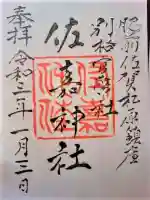 肥前佐賀松原鎮座
別格官幣社
佐嘉神社
奉拝
令和三年一月三日